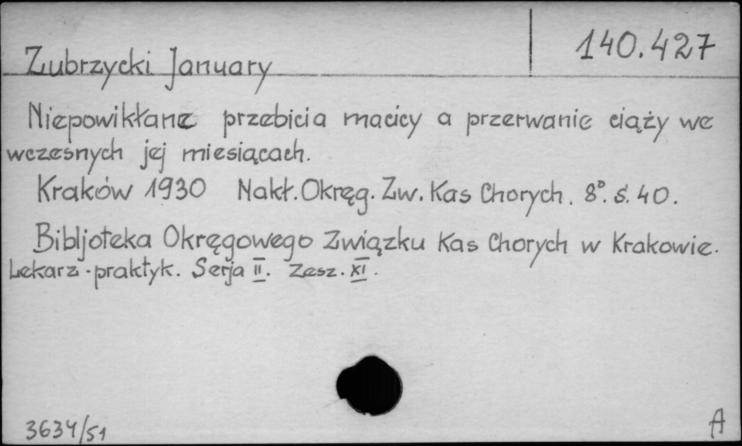 140.427
Zubrzycki January
Niepowikłane przebicia macicy a przerwanie ciąży we
wczesnych jej miesiącach.
Kraków 1930 Nakł. Okręg. Zw. Kas Chorych. 8°. s. 40.
Bibljoteka Okręgowego Związku Kas Chorych w Krakowie.
Lekarz-praktyk. Serja II. Zesz. XI.
3634/51
A